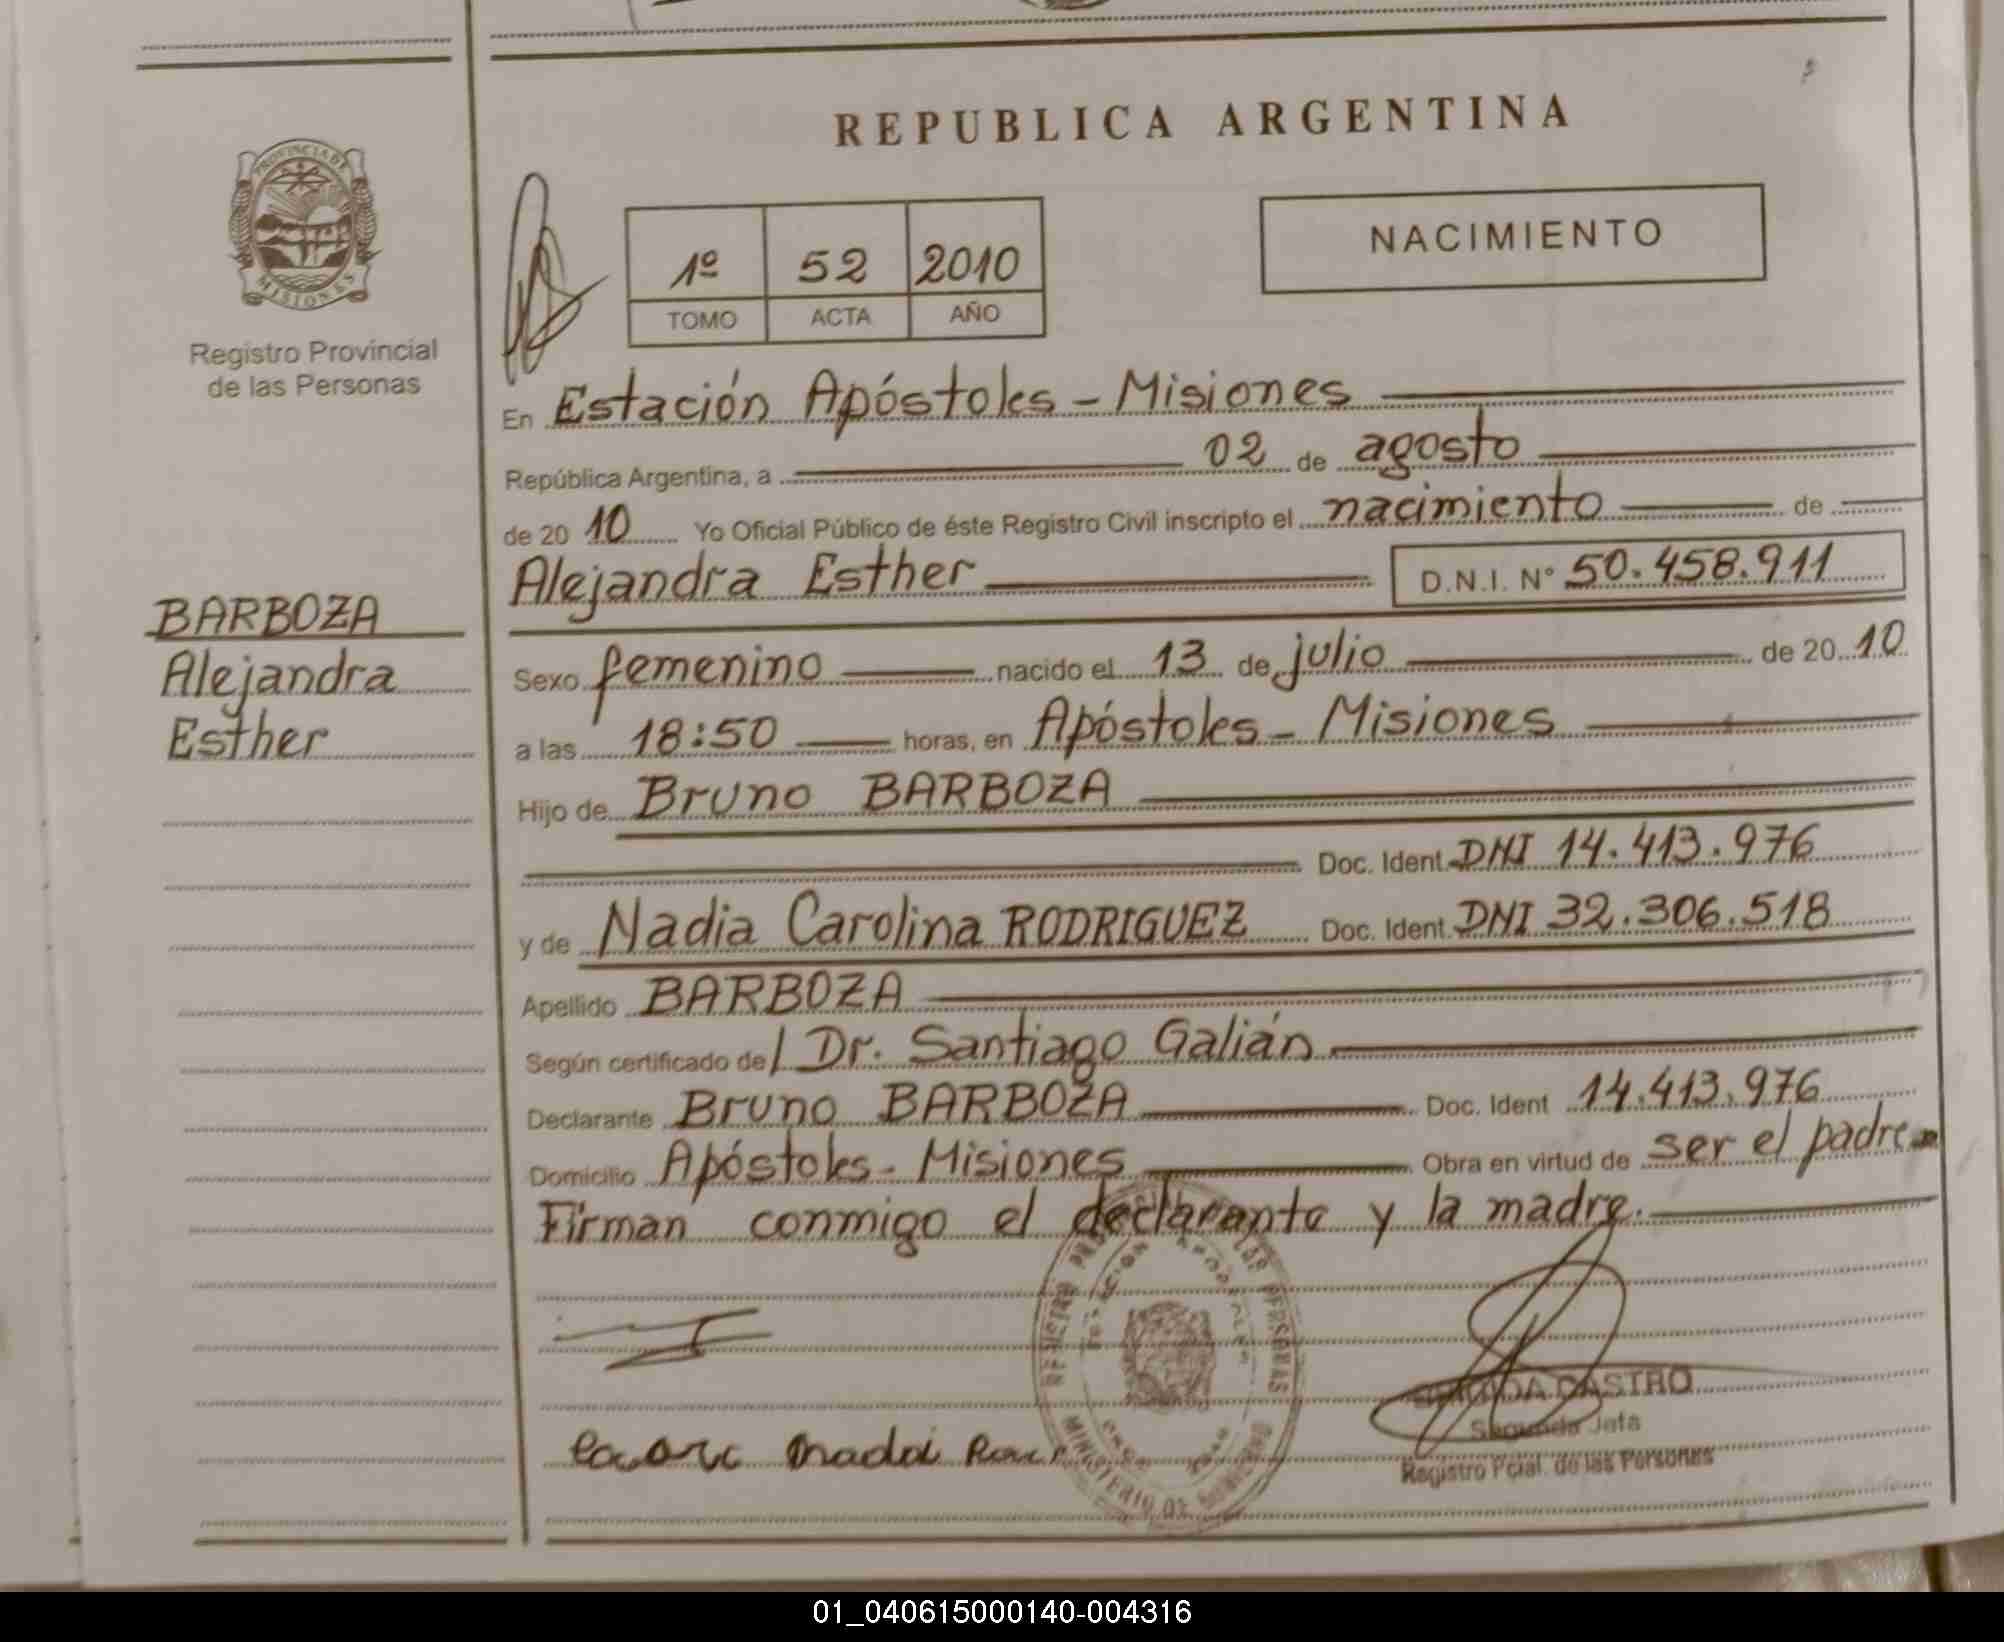 REPUBLICA ARGENTINA
PROVINCIA DE
MISIONES
Registro Provincial
de las Personas
1º 52 2010
TOMO ACTA AÑO
NACIMIENTO
En Estación Apóstoles - Misiones
República Argentina, a 02 de agosto
de 2010 Yo Oficial Público de éste Registro Civil inscripto el nacimiento de
Alejandra Esther D.N.I. Nº 50.458.911
BARBOZA
Alejandra
Esther
Sexo femenino nacido el 13 de julio de 2010
a las 18:50 horas, en Apóstoles - Misiones
Hijo de Bruno BARBOZA
Doc. Ident. DNI 14.413.976
y de Nadia Carolina RODRIGUEZ Doc. Ident. DNI 32.306.518
Apellido BARBOZA
Según certificado de Dr. Santiago Galián
Declarante Bruno BARBOZA Doc. Ident 14.413.976
Domicilio Apóstoles - Misiones Obra en virtud de ser el padre
Firman conmigo el declarante y la madre.
CASTRO
Segunda Jefa
Registro Pcial. de las Personas
MINISTERIO DE GOBIERNO
01_040615000140-004316